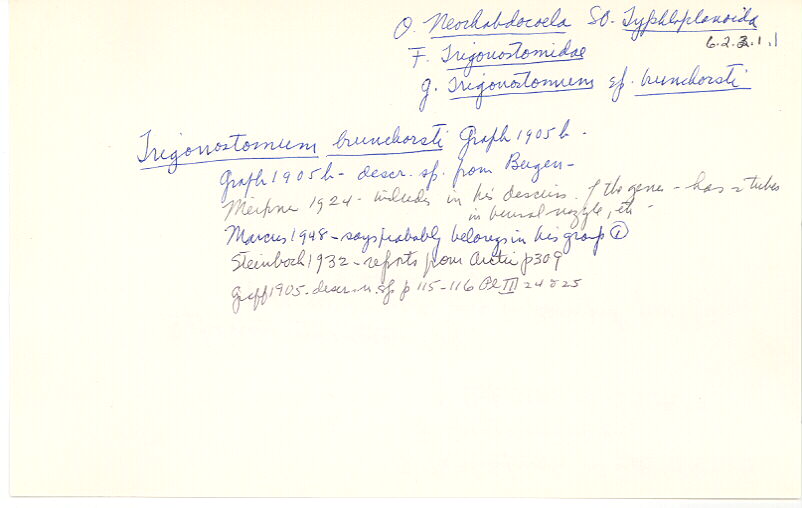 O. Neorhabdocoela SO. Typhloplanoida
6.2.3.1.1
F. Trigonostomidae
g. Trigonostomum sp. brunchorsti
Trigonostomum brunchorsti Graff 1905 b -
Graff 1905 b - descr. sp. from Bergen -
Meixner 1924 - includes in his discuss. of the genus - has 2 tubes
in bursal nozzle, etc -
Marcus 1948 - says probably belongs in his group ①
Steinböck 1932 - reports from Arctic p309
Graff 1905 - descr. n. sp. p 115-116 Pl III 24 & 25